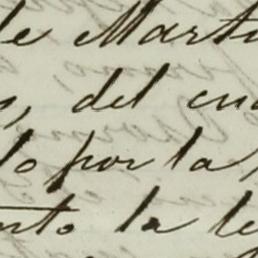 de Marti
, del cua
lo por la
nto la le